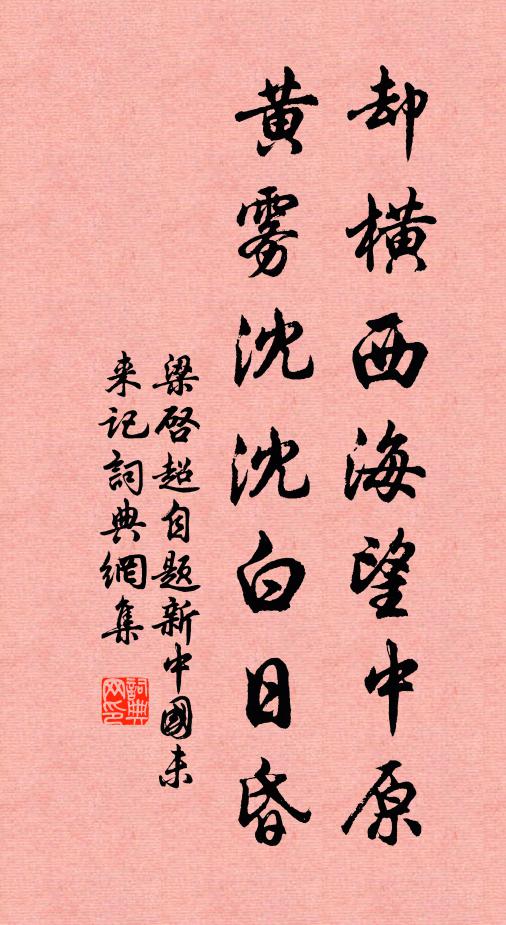 却橫西海望中原
黃雾沈沈白日昏
梁啓超自題新中國未
来记詞典網集
詞典
网印